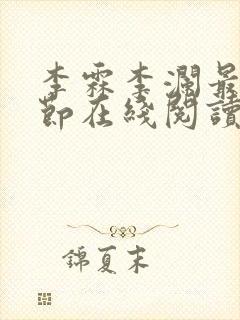 李霖李瀾最
節在綫閱讀
錦夏末